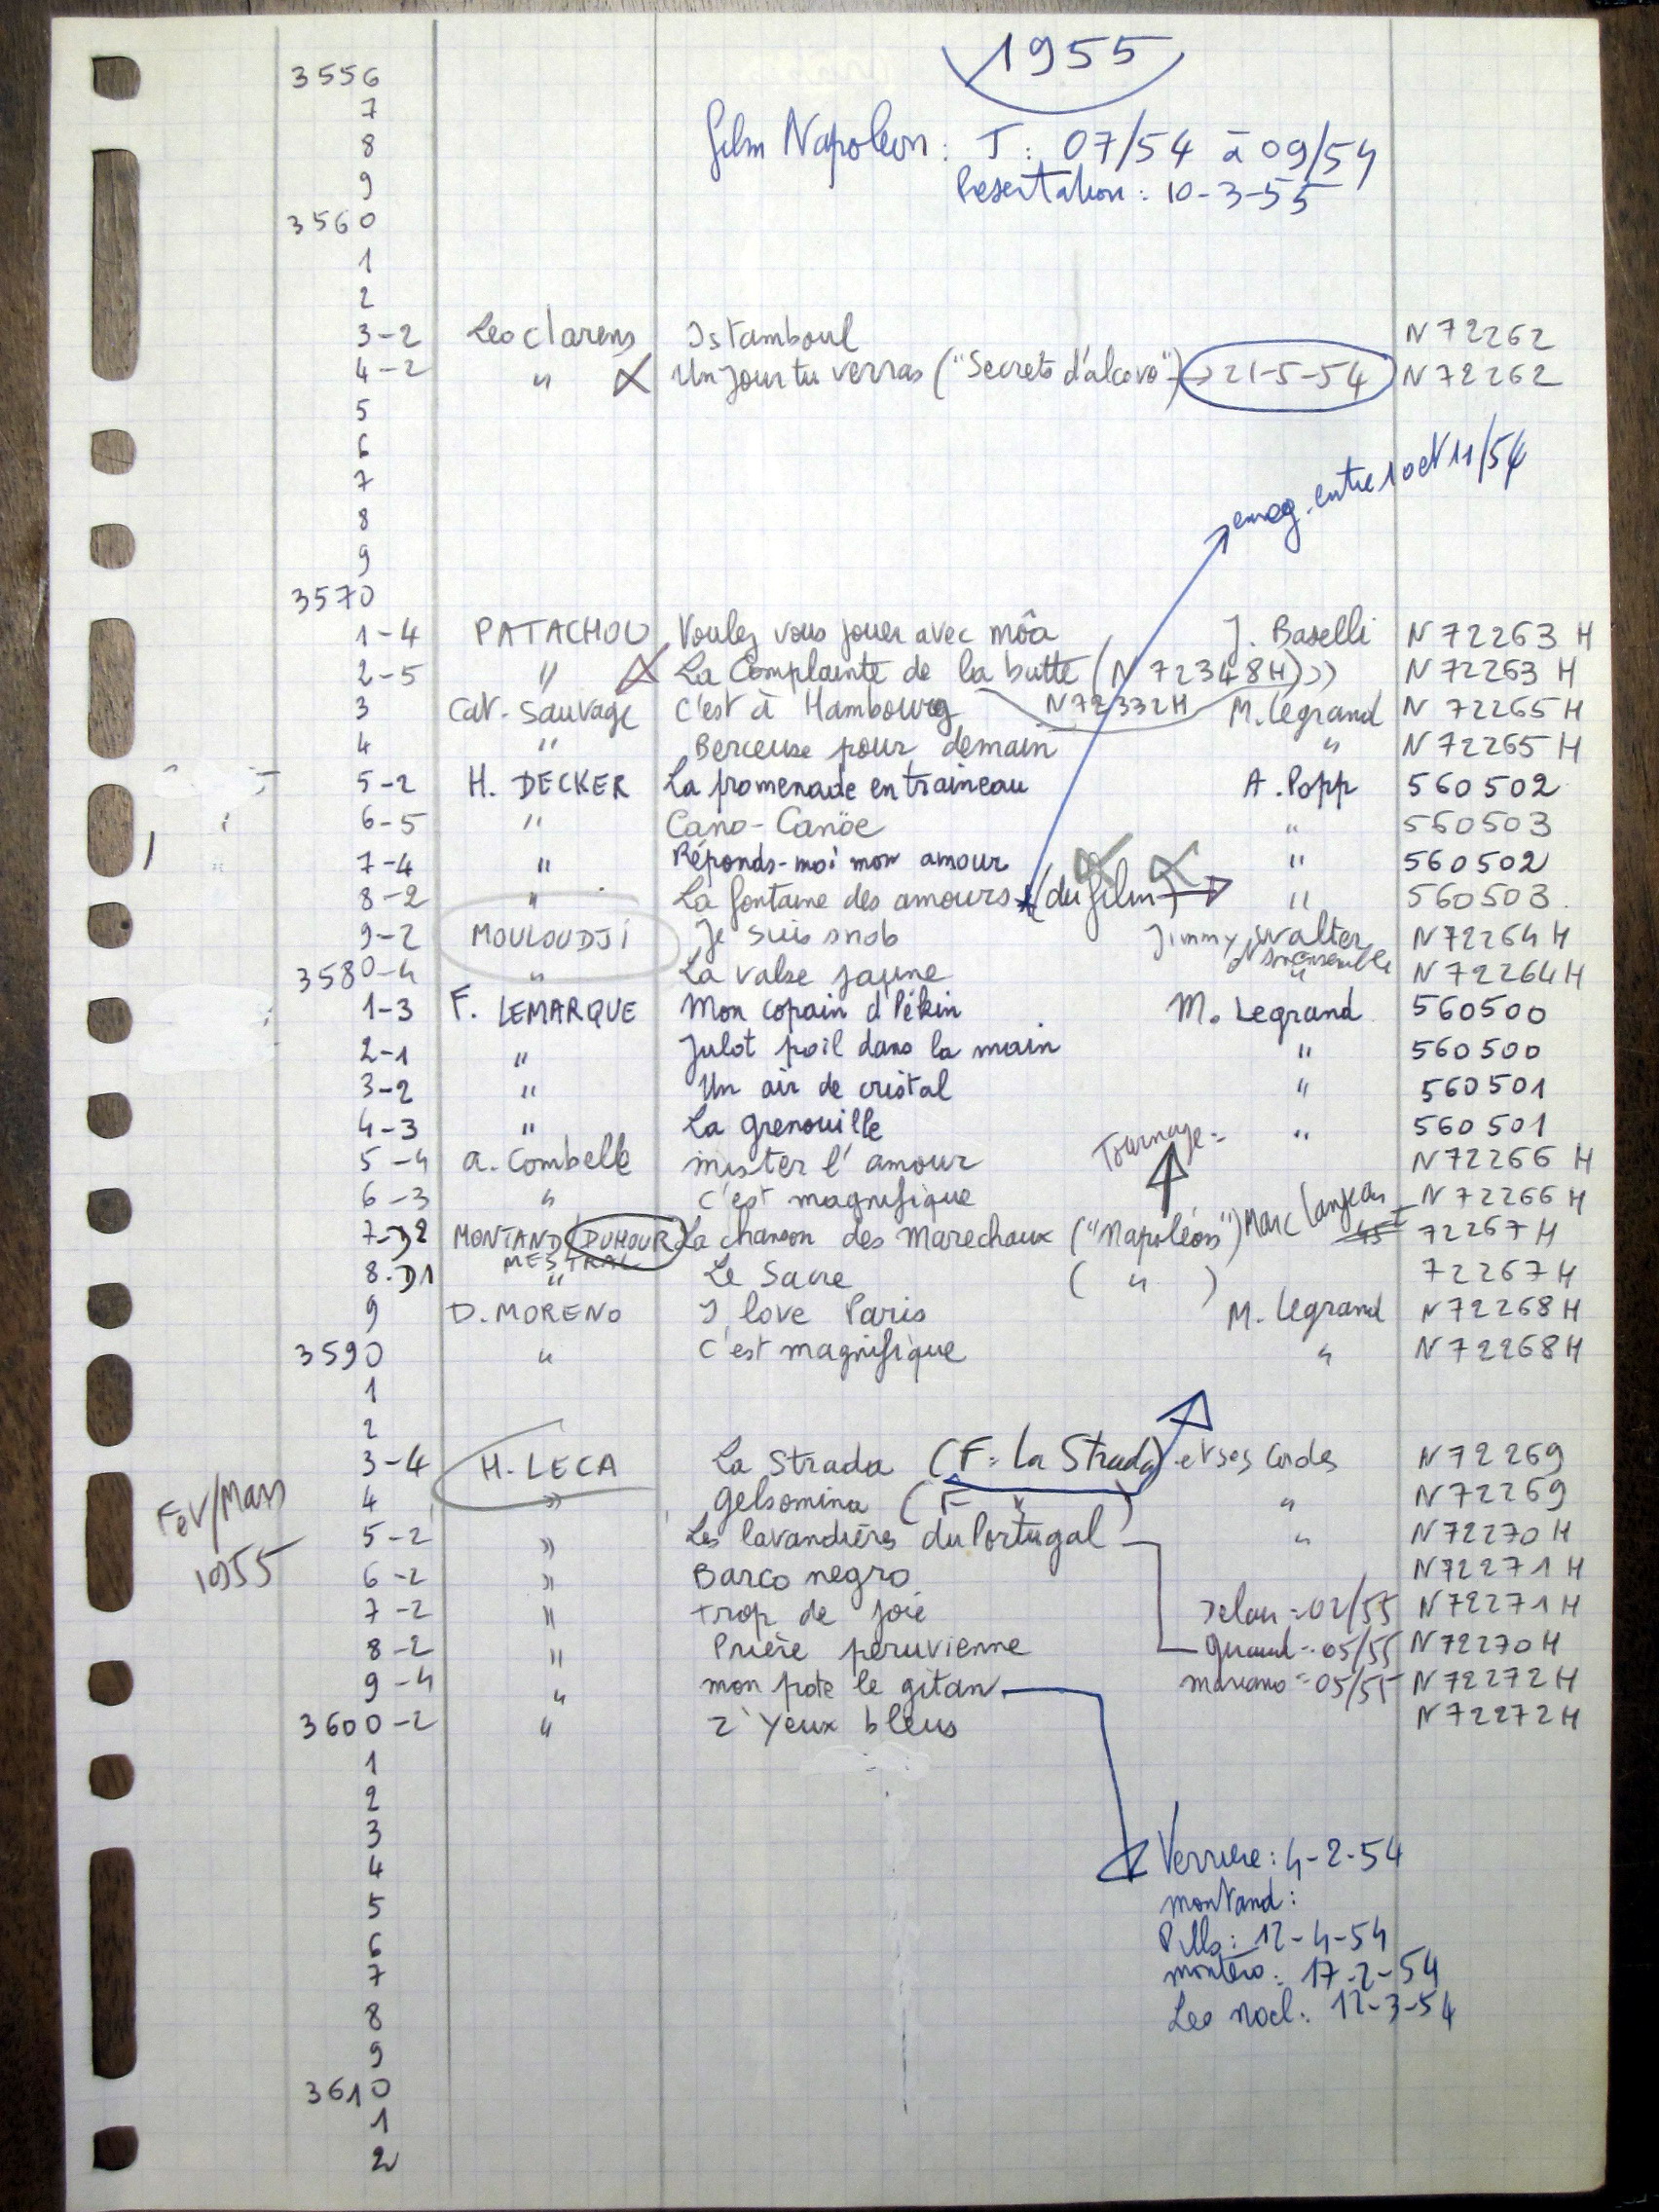 1955
3556
7
film Napoléon : T : 07/54 à 09/54
8
Présentation : 10-3-55
9
3560
1
2
3-2 Leo Clarens Istamboul N 72262
4-2 " Un jour tu verras ("Secrets d'alcove") → 21-5-54 N 72262
5
6
enreg. entre 10 et 11/54
7
8
9
3570
1-4 PATACHOU Voulez vous jouer avec môa J. Baselli N 72263 H
2-5 " La Complainte de la butte (N 72348H) N 72263 H
3 Cat. Sauvage C'est à Hambourg N72332H M. Legrand N 72265 H
4 " Berceuse pour demain " N 72265 H
5-2 H. DECKER La promenade en traineau A. Popp 560502
6-5 " Cano-Canöe " 560503
7-4 " Réponds-moi mon amour " 560502
8-2 " La fontaine des amours (du film) → " 560503
9-2 MOULOUDJI Je suis snob Jimmy Walter N72264 H
et son ensemble
3580-4 " La valse jaune " N 72264H
1-3 F. LEMARQUE Mon copain d'Pékin M. Legrand 560500
2-1 " Julot poil dans la main " 560500
3-2 " Un air de cristal " 560501
4-3 " La grenouille " 560501
Tournage :
5-4 A. Combelle mister l'amour N72266 H
6-3 " C'est magnifique N 72266 H
7-D2 MONTAND DUHOUR La chanson des Marechaux ("Napoléon") Marc Lanjean 72267 H
MESTRAL
8-D1 " Le Sacre ( " ) 72267 H
9 D. MORENO I love Paris M. Legrand N 72268H
3590 " C'est magnifique " N 72268H
1
2
3-4 H. LECA La Strada (F : La Strada) et ses Cordes N 72269
Fev/Mars
4 " Gelsomina (F " ) " N 72269
5-2 " Les lavandières du Portugal " N 72270 H
1955
6-2 " Barco negro N 72271 H
7-2 " trop de joie 02/55 N 72271 H
8-2 " Prière peruvienne 05/55 N 72270 H
9-4 " mon pote le gitan mariano = 05/55 N 72272 H
3600-2 " z'yeux bleus N 72272 H
1
2
3
Verriere : 4-2-54
4
montand :
5
Pills : 12-4-54
6
montero : 17-2-54
7
Leo Noel : 12-3-54
8
9
3610
1
2